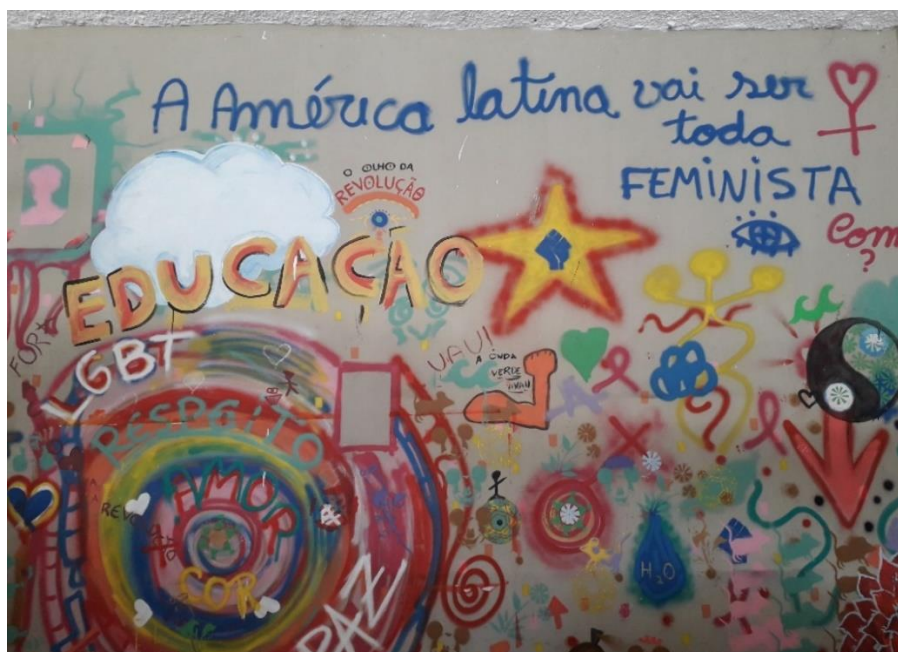 A América latina vai ser
toda
FEMINISTA
O OLHO DA
REVOLUÇÃO
Com
?
EDUCAÇÃO
FORA
LGBT
UAU!
A ONDA
VERDE
RESPEITO
AMOR
REVO
COR
H₂O
PAZ